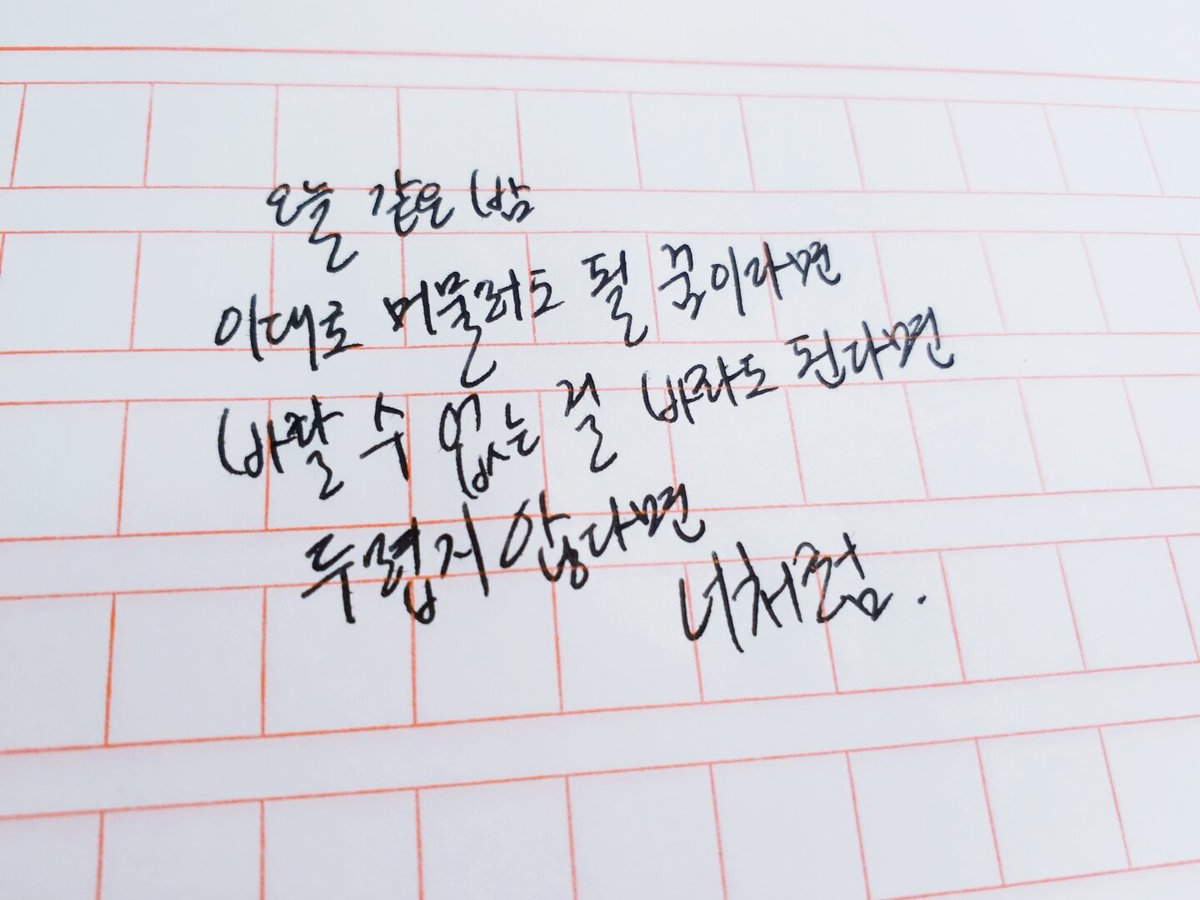 오늘 같은 밤
이대로 머물러도 될 꿈이라면
바랄 수 없는 걸 바라도 된다면
두렵지 않다면
너처럼.